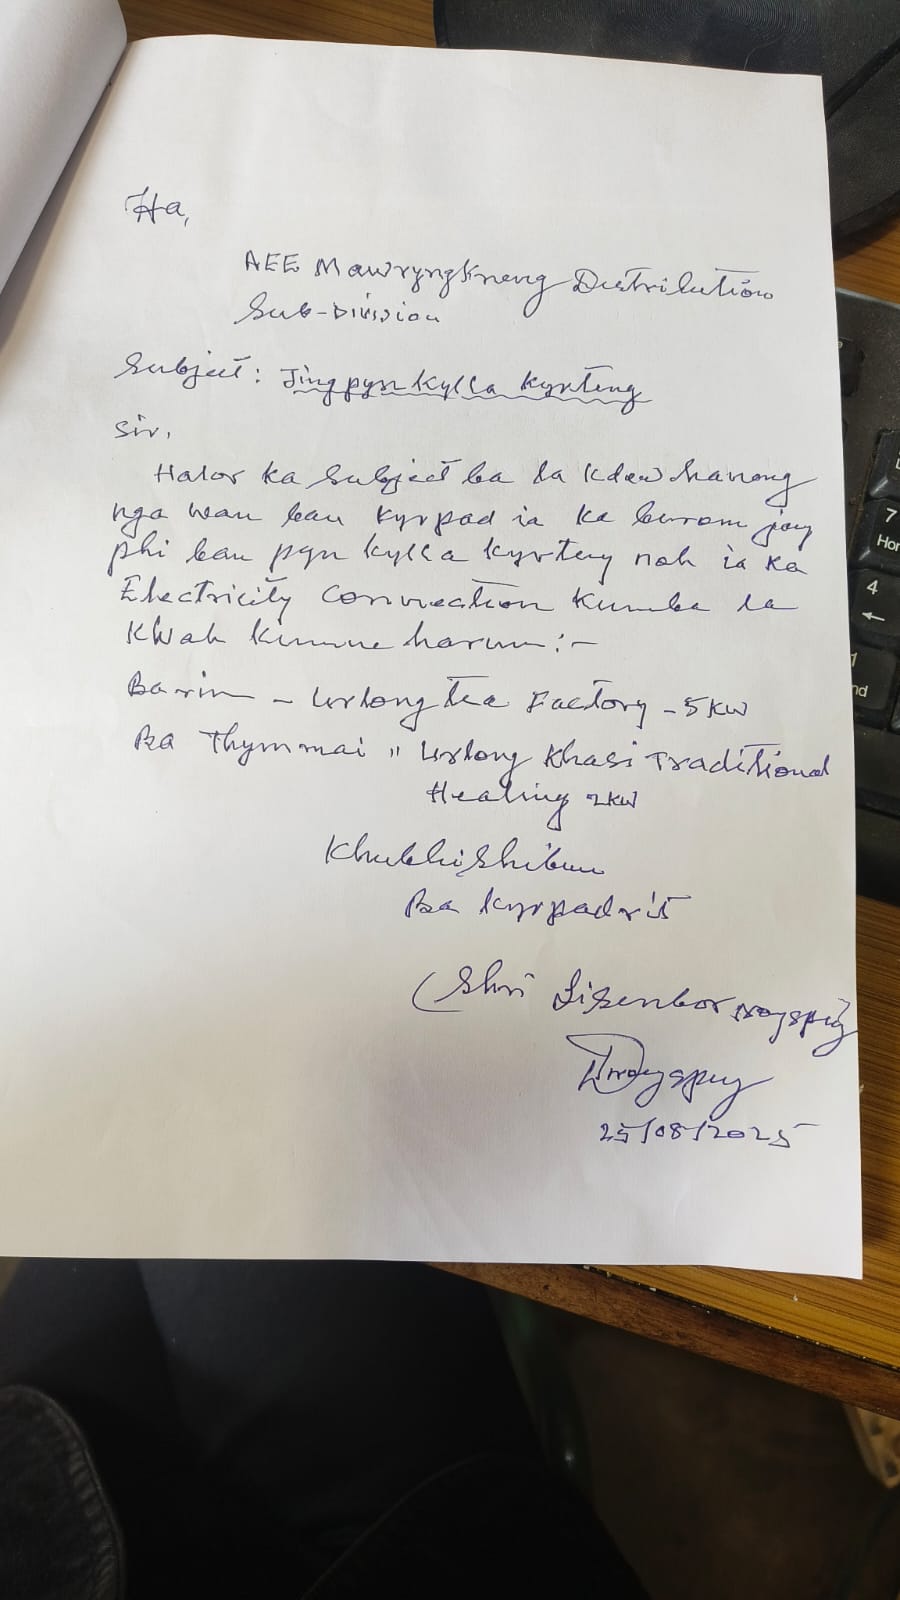 Ha,
AEE Mawryngkneng Distribution
Sub-Division
Subject: Jingpynkylla kyrteng
Sir,
Halor ka subject ba la kdew haneng
nga wan ban kyrpad ia ka burom jong
phi ban pyn kylla kyrteng noh ia ka
Electricity connection kumba la
kwah kumne harum:-
Barim - Urlong tea Factory - 5KW
Ba Thymmai " Urlong Khasi Traditional
Healing 2KW
Khublei Shibun
Ba kyrpad
(Shri Lisenbor Nongspung
25/08/2025
7
Hom
4
←
1
nd